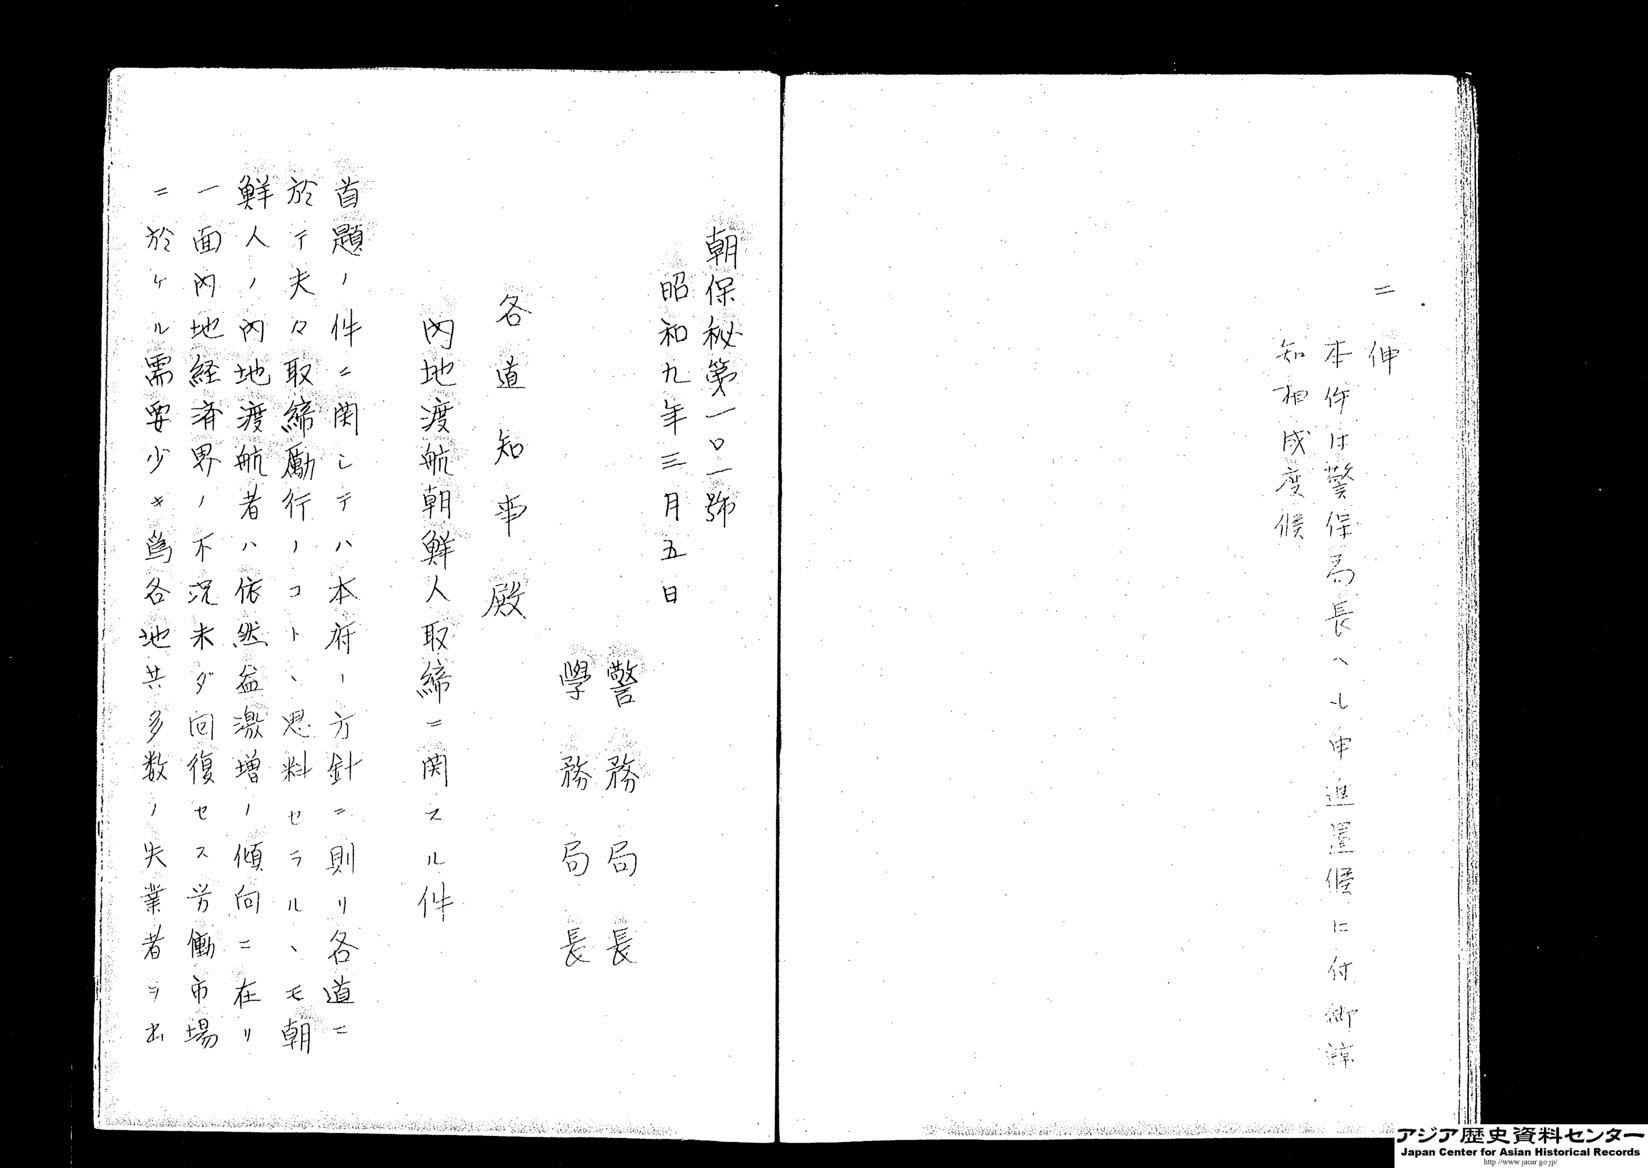 二伸
本件は警保局長へも申進置候に付御諒
知相成度候
朝保秘第一〇一號
昭和九年三月五日
警務局長
學務局長
各道知事殿
內地渡航朝鮮人取締ニ関スル件
首題ノ件ニ関シテハ本府ノ方針ニ則リ各道ニ
於テ夫々取締勵行ノコトヽ思料セラルヽモ朝
鮮人ノ內地渡航者ハ依然益激增ノ傾向ニ在リ
一面內地経済界ノ不況未ダ回復セス労働市場
ニ於ケル需要少キ爲各地共多数ノ失業者ヲ出
アジア歴史資料センター
Japan Center for Asian Historical Records
http://www.jacar.go.jp/